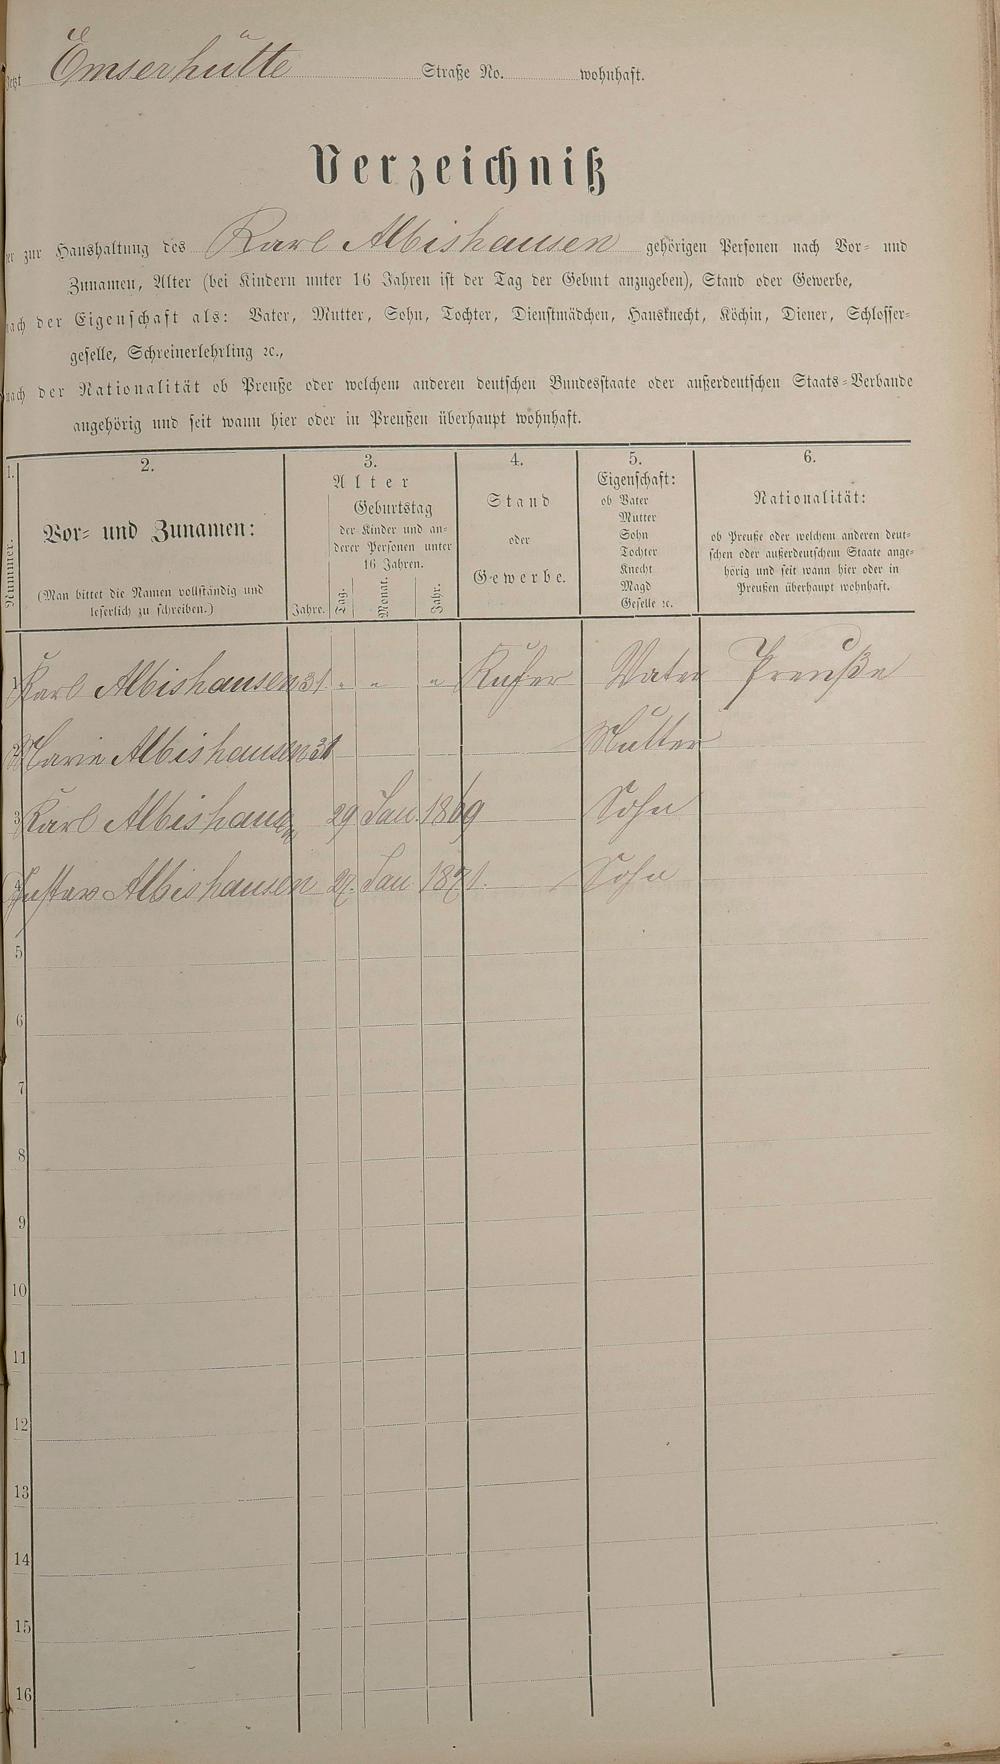 Jetzt Emserhütte Straße No. wohnhaft.
Verzeichniß
er zur Haushaltung des Karl Albishausen gehörigen Personen nach Vor- und
Zunamen, Alter (bei Kindern unter 16 Jahren ist der Tag der Geburt anzugeben), Stand oder Gewerbe,
nach der Eigenschaft als: Vater, Mutter, Sohn, Tochter, Dienstmädchen, Hausknecht, Köchin, Diener, Schlosser-
geselle, Schreinerlehrling ꝛc.,
nach der Nationalität ob Preuße oder welchem anderen deutschen Bundesstaate oder außerdeutschen Staats-Verbande
angehörig und seit wann hier oder in Preußen überhaupt wohnhaft.
1.
Nummer.
2.
Vor- und Zunamen:
(Man bittet die Namen vollständig und
leserlich zu schreiben.)
3.
Alter
Jahre.
Geburtstag
der Kinder und an-
derer Personen unter
16 Jahren.
Tag.
Monat.
Jahr.
4.
Stand
oder
Gewerbe.
5.
Eigenschaft:
ob Vater
Mutter
Sohn
Tochter
Knecht
Magd
Geselle ꝛc.
6.
Nationalität:
ob Preuße oder welchem anderen deut-
schen oder außerdeutschem Staate ange-
hörig und seit wann hier oder in
Preußen überhaupt wohnhaft.
1 Karl Albishausen 31 " " " Küfer Vater Preuße
2 Marie Albishausen 31 Mutter
3 Karl Albishausen 29 Jan. 1869 Sohn
4 Gustav Albishausen 27. Jan 1871. Sohn
5
6
7
8
9
10
11
12
13
14
15
16